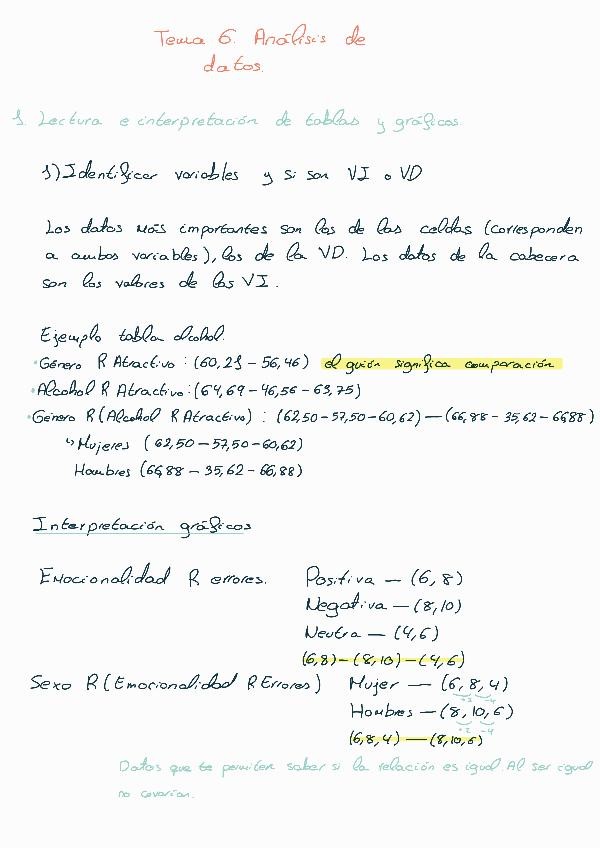 Tema 6. Análisis de
datos.
1. Lectura e interpretación de tablas y gráficos.
1) Identificar variables y si son VI o VD
Los datos más importantes son los de las celdas (corresponden
a ambos variables), los de la VD. Los datos de la cabecera
son los valores de las VI.
Ejemplo tabla alcohol.
• Género R Atractivo: (60,21 - 56,46) el guión significa comparación
• Alcohol R Atractivo: (64,69 - 46,56 - 63,75)
• Género R (Alcohol R Atractivo) : (62,50 - 57,50 - 60,62) — (66,88 - 35,62 - 66,88)
↳ Mujeres (62,50 - 57,50 - 60,62)
Hombres (66,88 - 35,62 - 66,88)
Interpretación gráficos
Emocionalidad R errores. Positiva — (6, 8)
Negativa — (8, 10)
Neutra — (4, 6)
(6,8) - (8,10) - (4,6)
Sexo R (Emocionalidad R Errores) Mujer — (6, 8, 4)
+2 -4
Hombres — (8, 10, 6)
+2 -4
(6,8,4) — (8,10,6)
Datos que te permiten saber si la relación es igual. Al ser igual
no covarían.